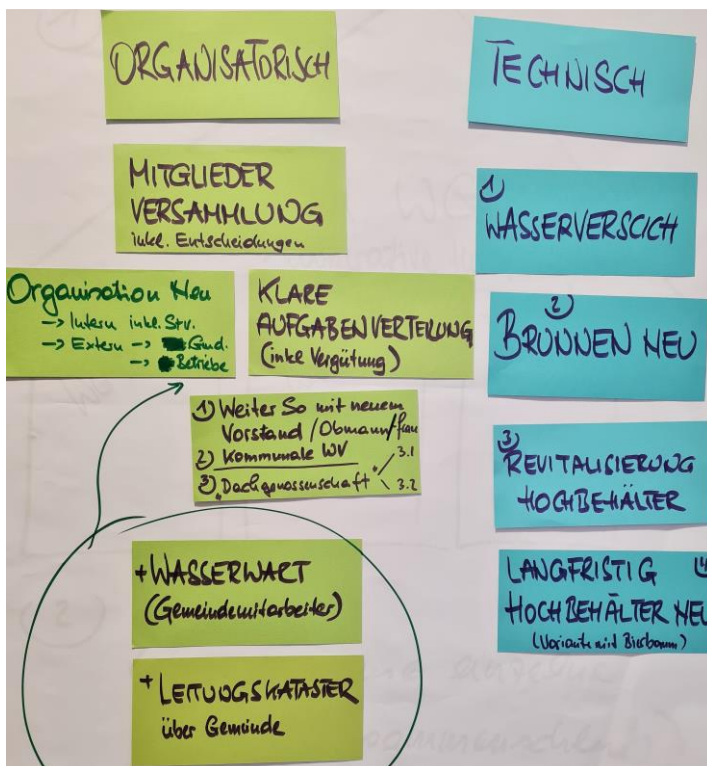 ORGANISATORISCH
MITGLIEDER
VERSAMMLUNG
inkl. Entscheidungen
Organisation Neu
→ Intern inkl. Stv.
→ Extern → Gmd.
→ Betriebe
KLARE
AUFGABENVERTEILUNG
(inkl Vergütung)
1) Weiter So mit neuem
Vorstand/Obmann/frau
2) Kommunale WV
3) "Dachgenossenschaft" 3.1
3.2
+ WASSERWART
(Gemeindemitarbeiter)
+ LEITUNGSKATASTER
über Gemeinde
TECHNISCH
1)
WASSERVERSCICH
2)
BRUNNEN NEU
3)
REVITALISIERUNG
HOCHBEHÄLTER
LANGFRISTIG 4)
HOCHBEHÄLTER NEU
(Variante mit Bierbaum)